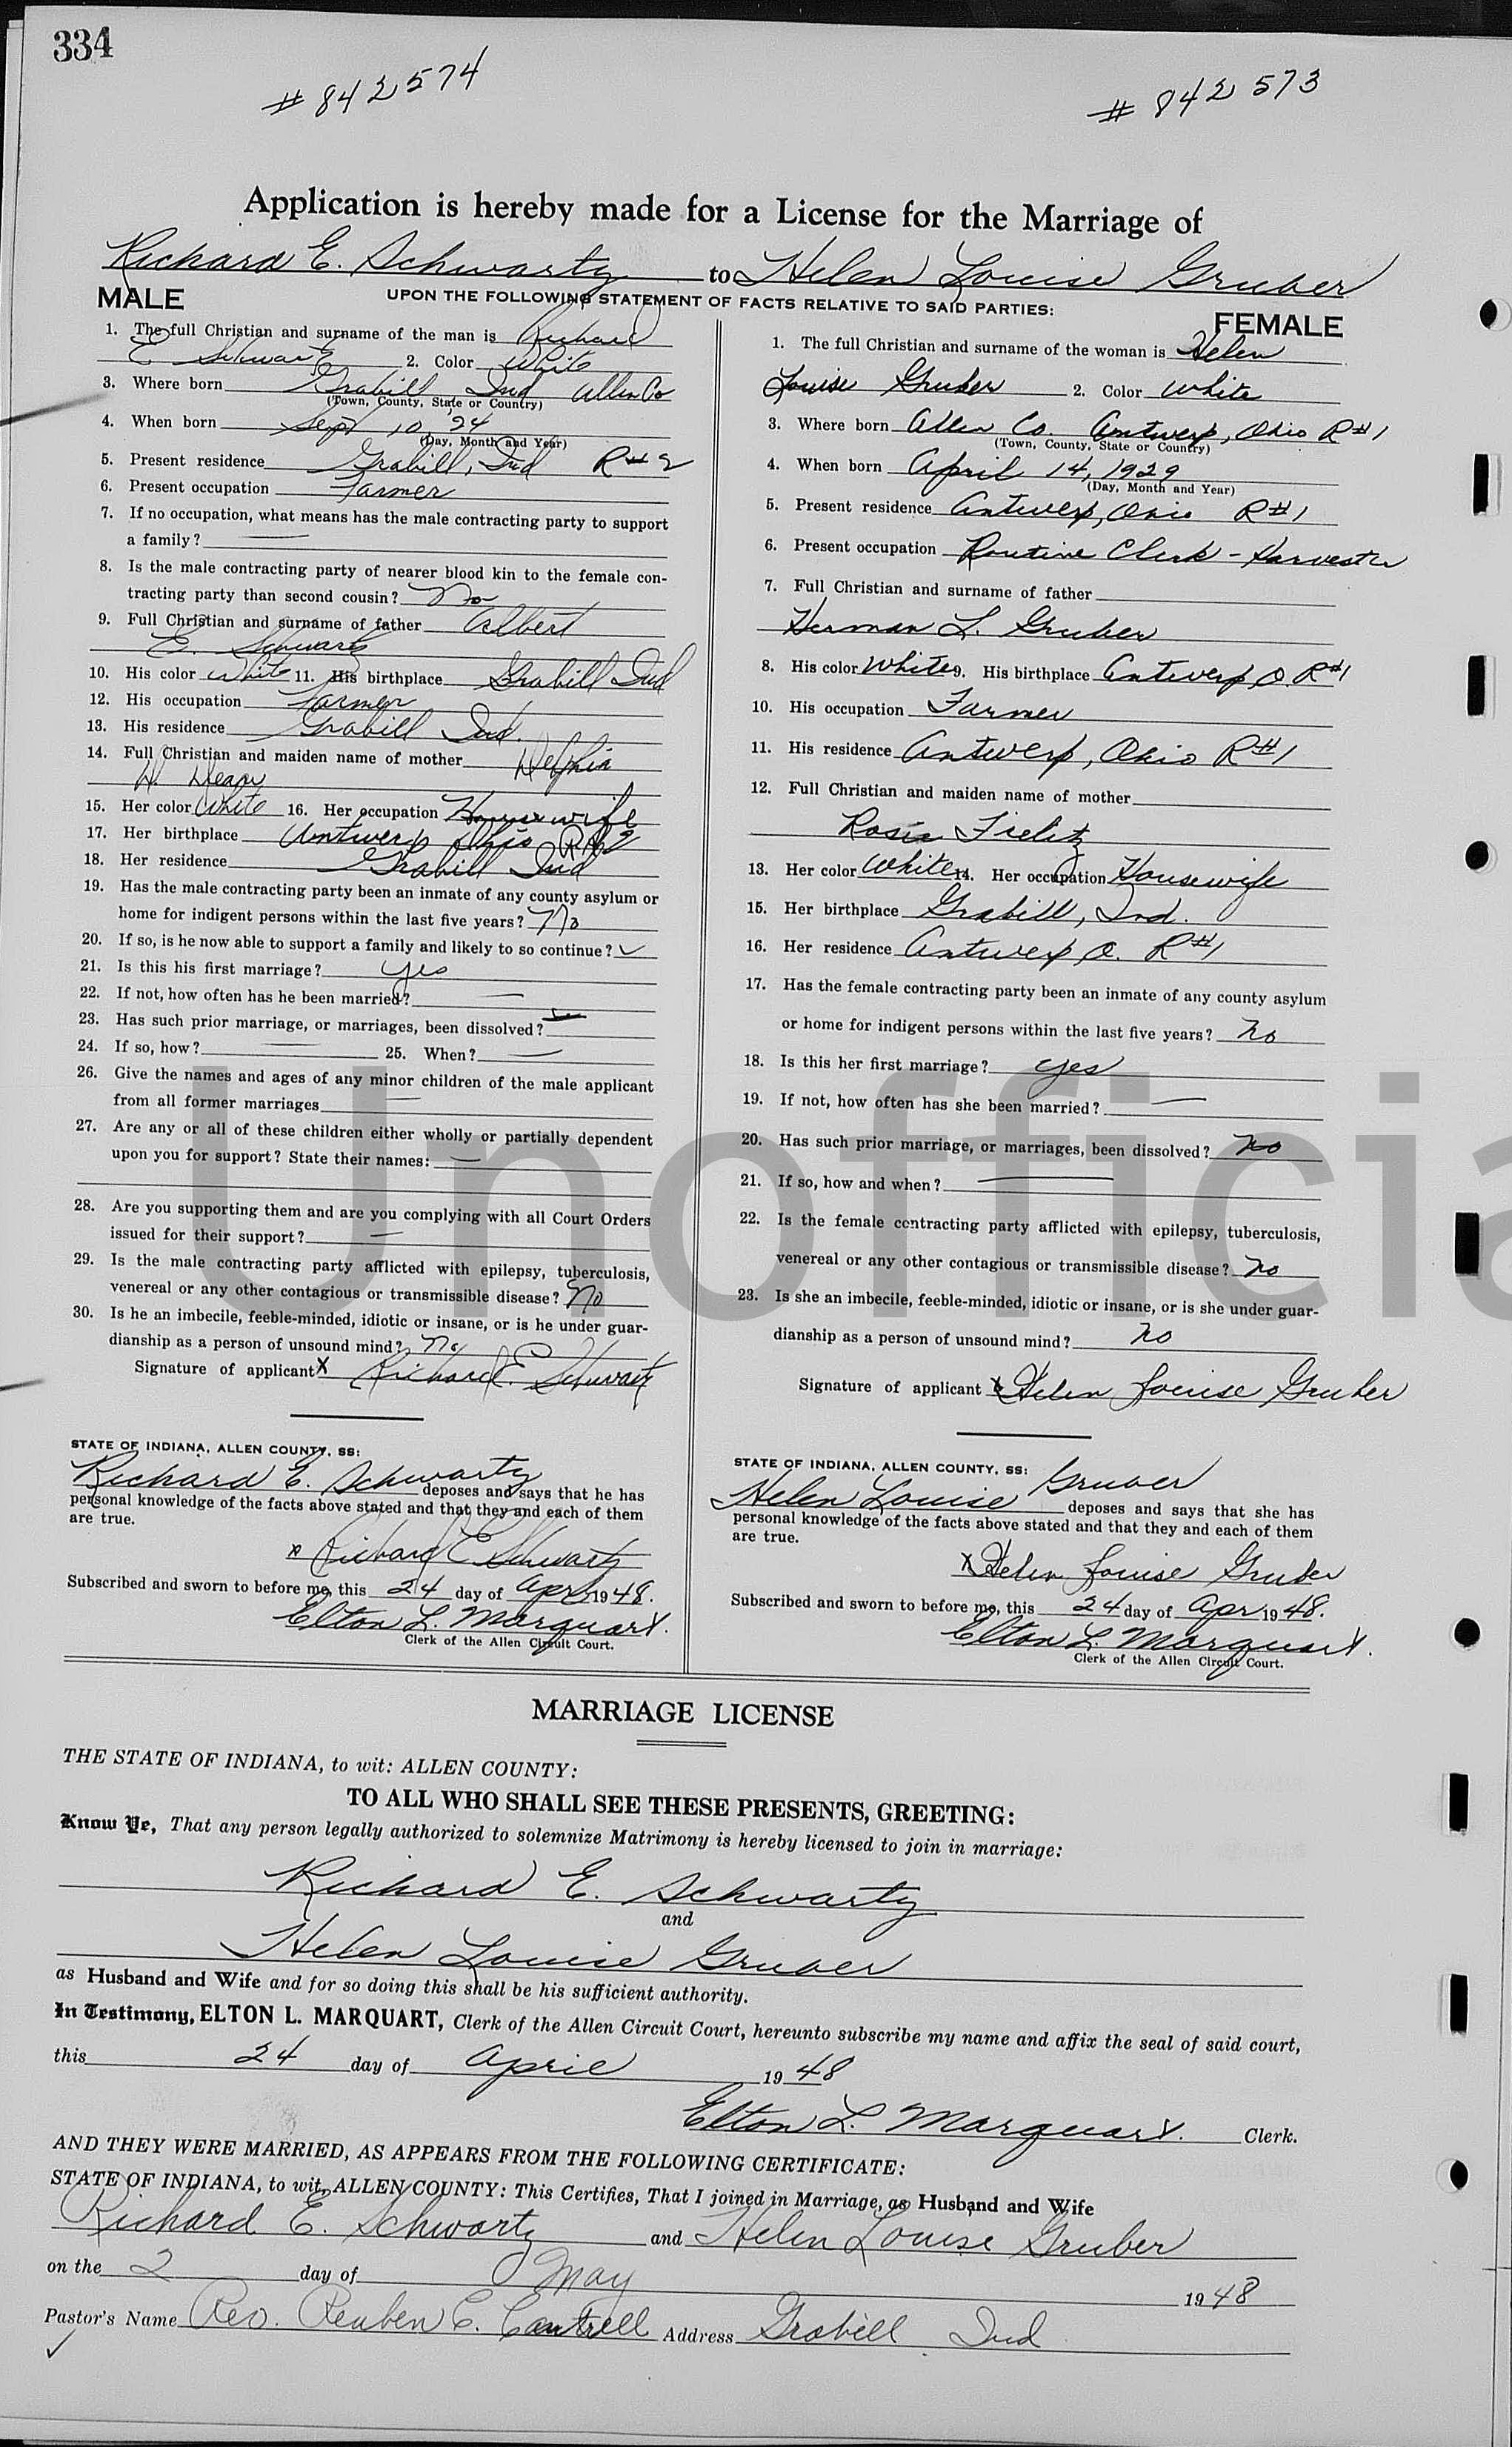 334
#842574
#842573
Application is hereby made for a License for the Marriage of
Richard E. Schwartz to Helen Louise Gruber
UPON THE FOLLOWING STATEMENT OF FACTS RELATIVE TO SAID PARTIES:
MALE
1. The full Christian and surname of the man is Richard
E Schwartz 2. Color White
3. Where born Grabill Ind Allen Co
(Town, County, State or Country)
4. When born Sept 10, '24
(Day, Month and Year)
5. Present residence Grabill, Ind R#2
6. Present occupation Farmer
7. If no occupation, what means has the male contracting party to support
a family? —
8. Is the male contracting party of nearer blood kin to the female con-
tracting party than second cousin? No
9. Full Christian and surname of father Albert
E. Schwartz
10. His color White 11. His birthplace Grabill Ind
12. His occupation Farmer
13. His residence Grabill Ind.
14. Full Christian and maiden name of mother Delphia
H.
15. Her color White 16. Her occupation Housewife
17. Her birthplace Antwerp Ohio R#2
18. Her residence Grabill Ind
19. Has the male contracting party been an inmate of any county asylum or
home for indigent persons within the last five years? No
20. If so, is he now able to support a family and likely to so continue? ✓
21. Is this his first marriage? yes
22. If not, how often has he been married? —
23. Has such prior marriage, or marriages, been dissolved?
24. If so, how? — 25. When? —
26. Give the names and ages of any minor children of the male applicant
from all former marriages —
27. Are any or all of these children either wholly or partially dependent
upon you for support? State their names: —
28. Are you supporting them and are you complying with all Court Orders
issued for their support? —
29. Is the male contracting party afflicted with epilepsy, tuberculosis,
venereal or any other contagious or transmissible disease? No
30. Is he an imbecile, feeble-minded, idiotic or insane, or is he under guar-
dianship as a person of unsound mind? No
Signature of applicant X Richard E. Schwartz
STATE OF INDIANA, ALLEN COUNTY, SS:
Richard E. Schwartz deposes and says that he has
personal knowledge of the facts above stated and that they and each of them
are true.
x Richard E Schwartz
Subscribed and sworn to before me, this 24 day of Apr 1948.
Elton L. Marquart.
Clerk of the Allen Circuit Court.
FEMALE
1. The full Christian and surname of the woman is Helen
Louise Gruber 2. Color White
3. Where born Allen Co. Antwerp, Ohio R#1
(Town, County, State or Country)
4. When born April 14, 1929
(Day, Month and Year)
5. Present residence Antwerp, Ohio R#1
6. Present occupation Routine Clerk - Harvester
7. Full Christian and surname of father
Herman L. Gruber
8. His color White 9. His birthplace Antwerp, O. R#1
10. His occupation Farmer
11. His residence Antwerp, Ohio R#1
12. Full Christian and maiden name of mother
Rosia Fielitz
13. Her color White 14. Her occupation Housewife
15. Her birthplace Grabill, Ind.
16. Her residence Antwerp O. R#1
17. Has the female contracting party been an inmate of any county asylum
or home for indigent persons within the last five years? No
18. Is this her first marriage? yes
19. If not, how often has she been married? —
20. Has such prior marriage, or marriages, been dissolved? no
21. If so, how and when? —
22. Is the female contracting party afflicted with epilepsy, tuberculosis,
venereal or any other contagious or transmissible disease? no
23. Is she an imbecile, feeble-minded, idiotic or insane, or is she under guar-
dianship as a person of unsound mind? no
Signature of applicant X Helen Louise Gruber
STATE OF INDIANA, ALLEN COUNTY, SS:
Helen Louise Gruber deposes and says that she has
personal knowledge of the facts above stated and that they and each of them
are true.
X Helen Louise Gruber
Subscribed and sworn to before me, this 24 day of Apr 1948.
Elton L. Marquart.
Clerk of the Allen Circuit Court.
Unofficia
MARRIAGE LICENSE
THE STATE OF INDIANA, to wit: ALLEN COUNTY:
TO ALL WHO SHALL SEE THESE PRESENTS, GREETING:
Know Ye, That any person legally authorized to solemnize Matrimony is hereby licensed to join in marriage:
Richard E. Schwartz
and
Helen Louise Gruber
as Husband and Wife and for so doing this shall be his sufficient authority.
In Testimony, ELTON L. MARQUART, Clerk of the Allen Circuit Court, hereunto subscribe my name and affix the seal of said court,
this 24 day of April 1948
Elton L. Marquart. Clerk.
AND THEY WERE MARRIED, AS APPEARS FROM THE FOLLOWING CERTIFICATE:
STATE OF INDIANA, to wit, ALLEN COUNTY: This Certifies, That I joined in Marriage, as Husband and Wife
Richard E. Schwartz and Helen Louise Gruber
on the 2 day of May 1948
Pastor's Name Rev. Reuben E. Cantrell Address Grabill Ind
✓